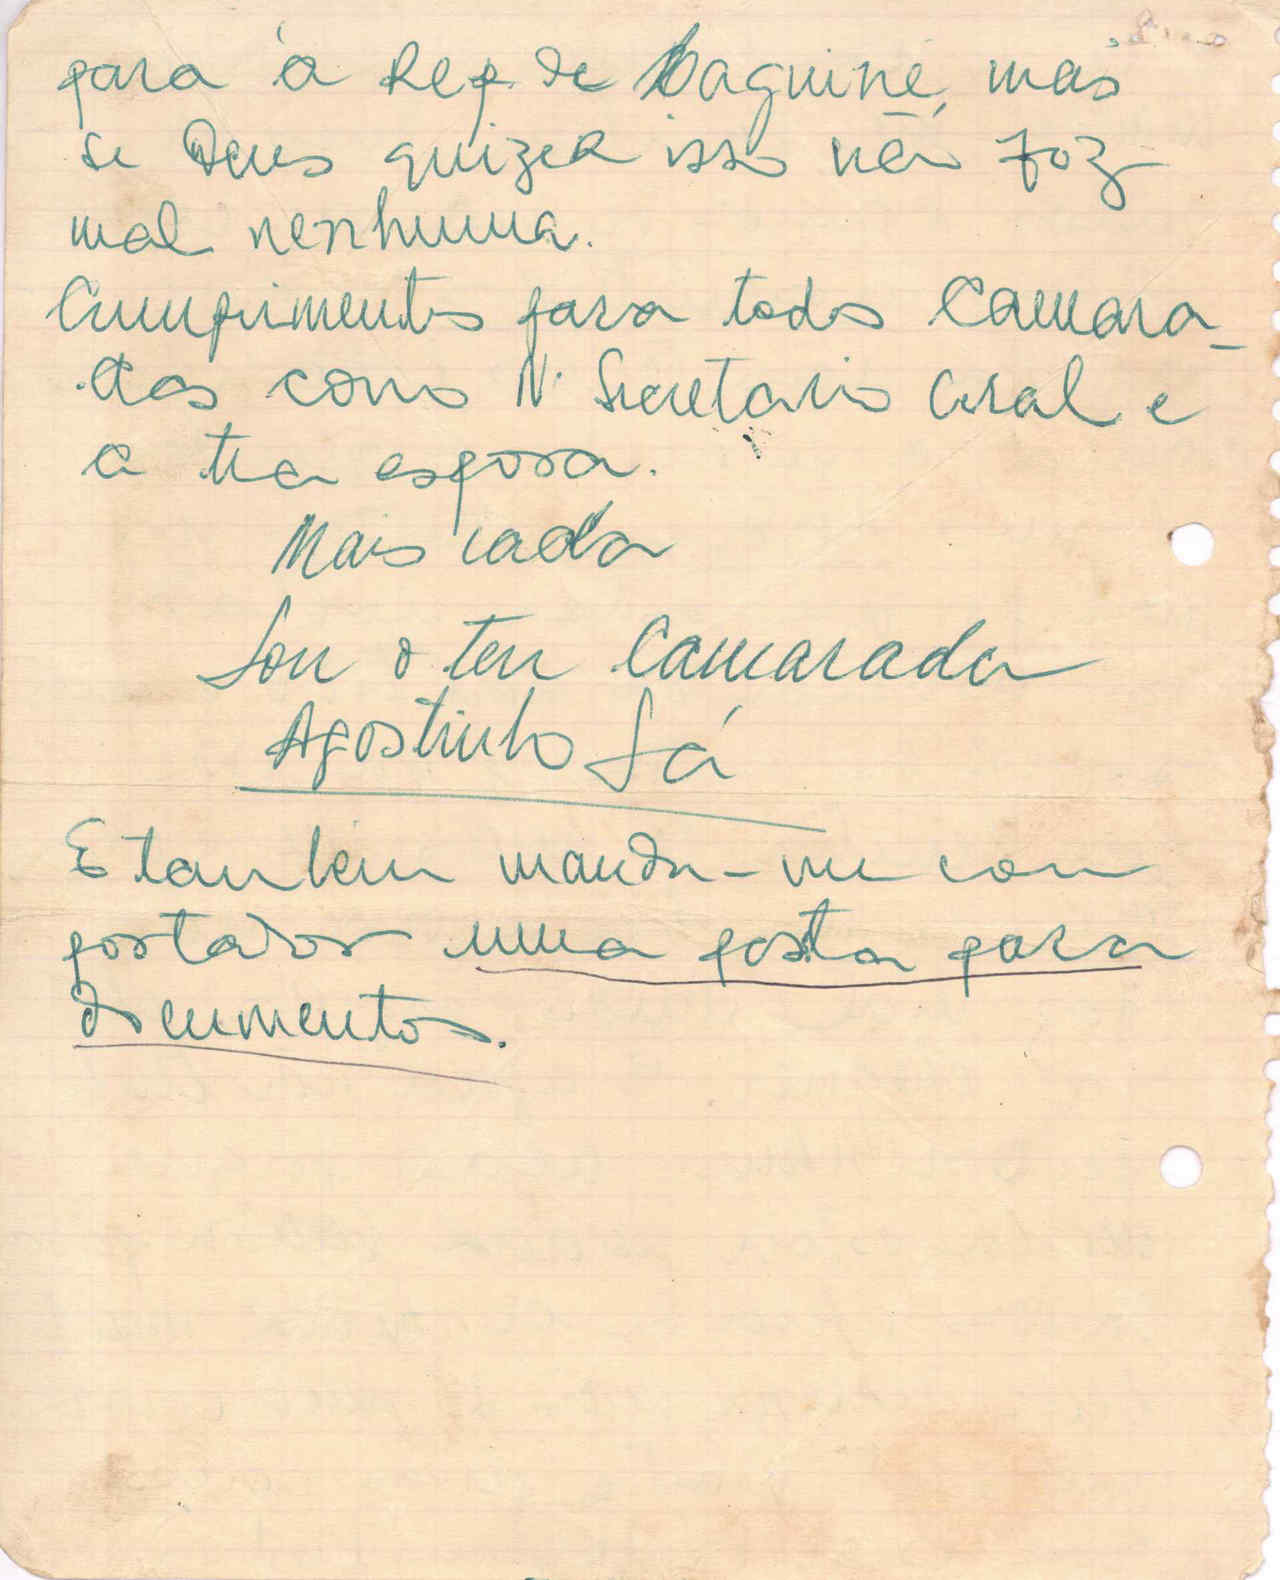 para à Rep. de Daguiné, mas
se Deus quizer isso não foz
mal nenhuma.
Cumprimentos para todos Camara-
das como N. Secretario Geral e
a tua esposa.
Mais nada
Sou o teu Camarada
Agostinho Sá
E tambêm manda-me com
portador uma pasta para
documentos.